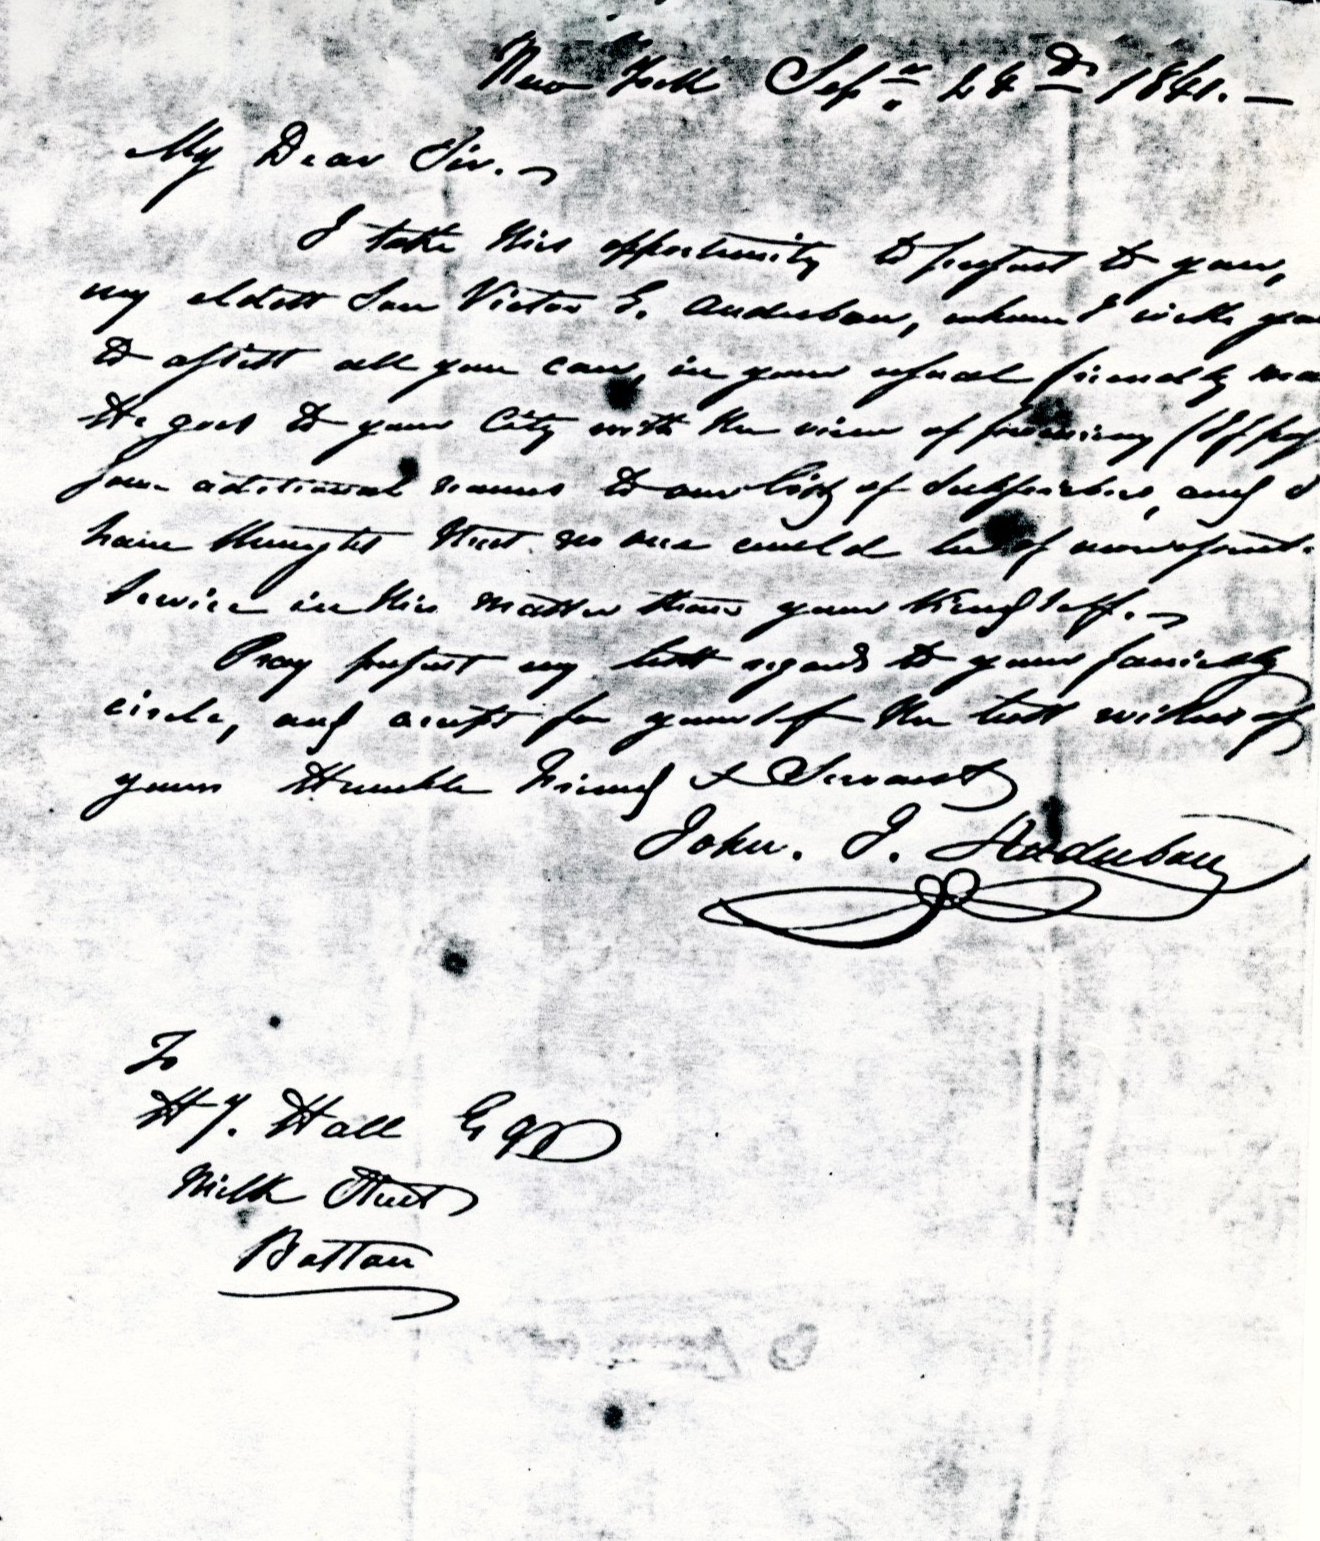 New York Sepr. 24th 1841. —
My Dear Sir. ~
I take this opportunity to present to you,
my eldest Son Victor G. Audubon, whom I wish you
to assist all you can, in your usual friendly
He goes to your City with the view of procuring (If
some aditional names to our list of Subscribers, and I
have thought that no one could be of more
Service in this matter than your Kind self. ~
Pray present my best regards to your family
circle, and accept for yourself the best wishes of
yours Humble Friend & Servant
John. J. Audubon
To
Hy. Hall Esqr
Milk Street
Boston